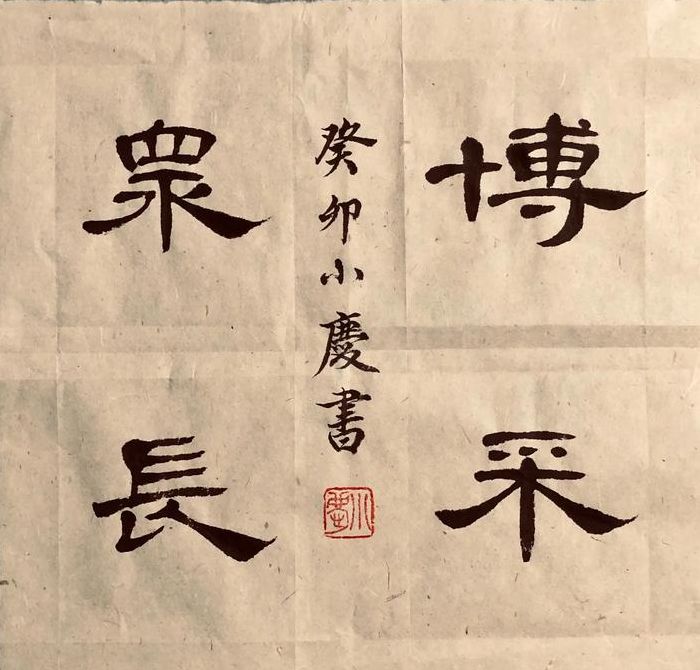 博采
眾長
癸卯小慶書